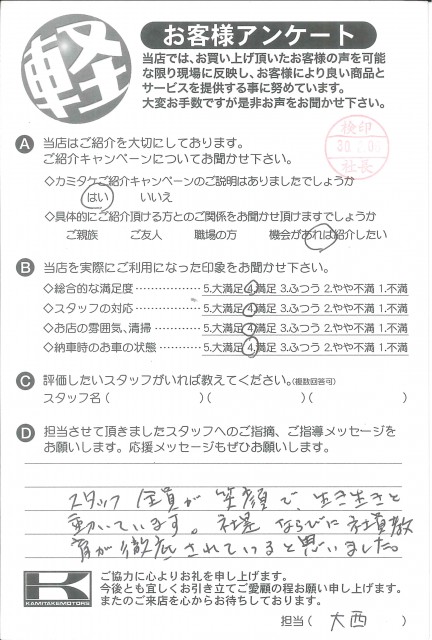 軽
お客様アンケート
当店では、お買い上げ頂いたお客様の声を可能
な限り現場に反映し、お客様により良い商品と
サービスを提供する事に努めています。
大変お手数ですが是非お声をお聞かせ下さい。
検印
30
社長
A 当店はご紹介を大切にしております。
ご紹介キャンペーンについてお聞かせ下さい。
◇カミタケご紹介キャンペーンのご説明はありましたでしょうか
はい いいえ
◇具体的にご紹介頂ける方とのご関係をお聞かせ頂けますでしょうか
ご親族 ご友人 職場の方 機会があれば紹介したい
B 当店を実際にご利用になった印象をお聞かせ下さい。
◇総合的な満足度 ………… 5.大満足 4.満足 3.ふつう 2.やや不満 1.不満
◇スタッフの対応 ………… 5.大満足 4.満足 3.ふつう 2.やや不満 1.不満
◇お店の雰囲気、清掃 ……… 5.大満足 4.満足 3.ふつう 2.やや不満 1.不満
◇納車時のお車の状態 ……… 5.大満足 4.満足 3.ふつう 2.やや不満 1.不満
C 評価したいスタッフがいれば教えてください。(複数回答可)
スタッフ名( )( )( )
D 担当させて頂きましたスタッフへのご指摘、ご指導メッセージを
お願いします。応援メッセージもぜひお願いします。
スタッフ全員が笑顔で、生き生きと
動いています。社是ならびに社員教
育が徹底されていると思いました。
K
KAMITAKEMOTORS
ご協力に心よりお礼を申し上げます。
今後とも宜しくお引き立てご愛顧の程お願い申し上げます。
またのご来店を心からお待ちしております。
担当( 大西 )